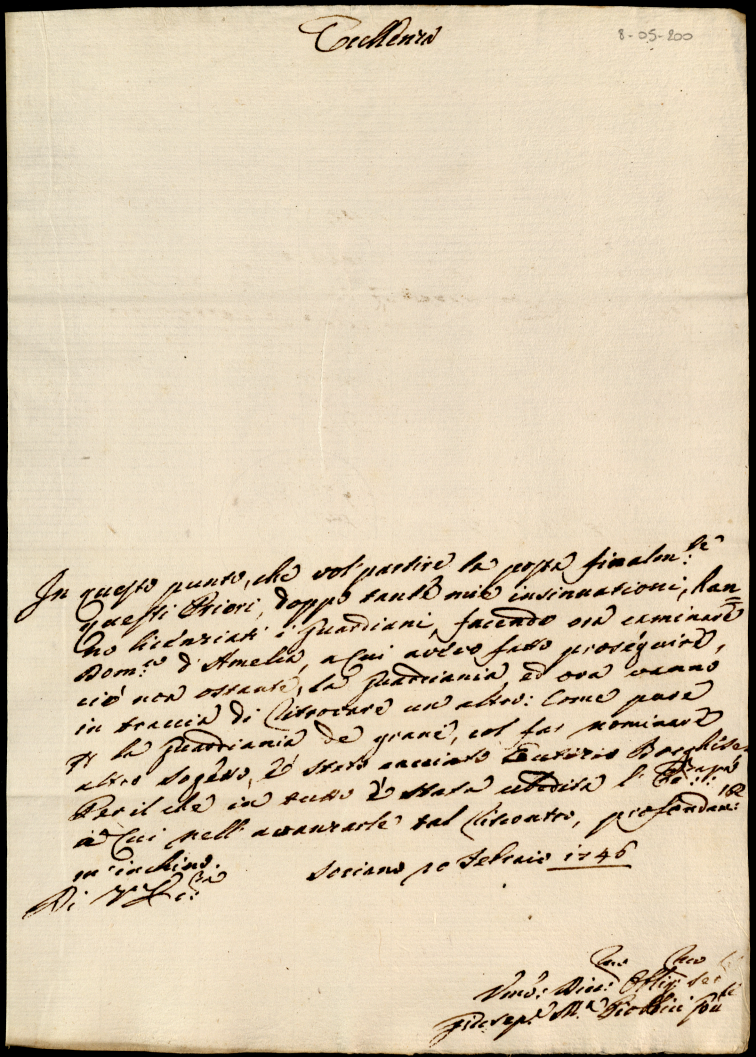 Eccellenza
8-05-200
In questo punto, che vol partire la posta finalm:te
questi Priori, doppo tante mie insinuationi, han=
no licenziati i Guardiani, facendo ora caminare
Dom:co d'Amelia, a cui avevo fatto proseguire,
ciò non ostante, la Guardiania, ed ora vanno
in traccia di ritrovare un altro: Come pure
p la Guardiania de grani, col far nominare
altro sogetto, è stato cacciato Eutizio Borghese.
Per il che in tutto è stata ubedita l'
à Cui nell'avanzarle tal riscontro, profondam:te
m'inchino.
Di V. Ecc:za
Soriano 10 Febraio 1746
Um: Div: Oblig:
Giusep:e M:a